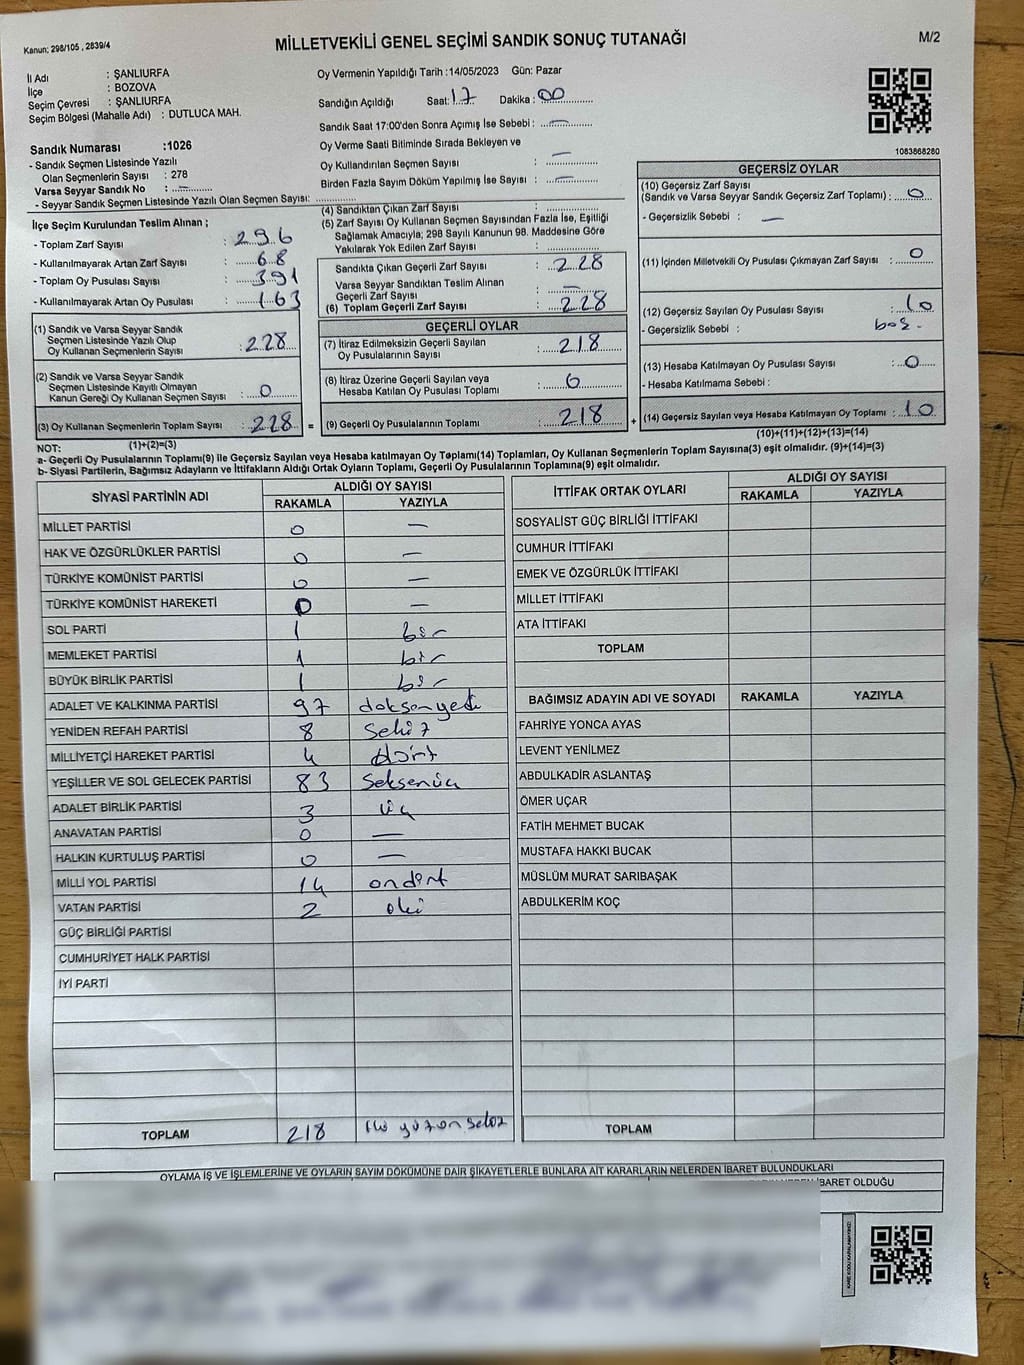 Kanun; 298/105 , 2839/4
MİLLETVEKİLİ GENEL SEÇİMİ SANDIK SONUÇ TUTANAĞI
M/2
İl Adı : ŞANLIURFA
İlçe : BOZOVA
Seçim Çevresi : ŞANLIURFA
Seçim Bölgesi (Mahalle Adı) : DUTLUCA MAH.
Sandık Numarası :1026
- Sandık Seçmen Listesinde Yazılı
Olan Seçmenlerin Sayısı : 278
Varsa Seyyar Sandık No : —
- Seyyar Sandık Seçmen Listesinde Yazılı Olan Seçmen Sayısı:
Oy Vermenin Yapıldığı Tarih :14/05/2023 Gün: Pazar
Sandığın Açıldığı Saat: 17 Dakika : 00
Sandık Saat 17:00'den Sonra Açımış İse Sebebi : —
Oy Verme Saati Bitiminde Sırada Bekleyen ve
Oy Kullandırılan Seçmen Sayısı : —
Birden Fazla Sayım Döküm Yapılmış İse Sayısı : —
1083868280
İlçe Seçim Kurulundan Teslim Alınan ;
- Toplam Zarf Sayısı : 296
- Kullanılmayarak Artan Zarf Sayısı : 68
- Toplam Oy Pusulası Sayısı : 391
- Kullanılmayarak Artan Oy Pusulası : 163
(1) Sandık ve Varsa Seyyar Sandık
Seçmen Listesinde Yazılı Olup
Oy Kullanan Seçmenlerin Sayısı : 228
(2) Sandık ve Varsa Seyyar Sandık
Seçmen Listesinde Kayıtlı Olmayan
Kanun Gereği Oy Kullanan Seçmen Sayısı : 0
(3) Oy Kullanan Seçmenlerin Toplam Sayısı : 228 =
(4) Sandıktan Çıkan Zarf Sayısı :
(5) Zarf Sayısı Oy Kullanan Seçmen Sayısından Fazla İse, Eşitliği
Sağlamak Amacıyla; 298 Sayılı Kanunun 98. Maddesine Göre
Yakılarak Yok Edilen Zarf Sayısı :
Sandıkta Çıkan Geçerli Zarf Sayısı : 228
Varsa Seyyar Sandıktan Teslim Alınan
Geçerli Zarf Sayısı : —
(6) Toplam Geçerli Zarf Sayısı : 228
GEÇERLİ OYLAR
(7) İtiraz Edilmeksizin Geçerli Sayılan
Oy Pusulalarının Sayısı : 218
(8) İtiraz Üzerine Geçerli Sayılan veya
Hesaba Katılan Oy Pusulası Toplamı : 0
(9) Geçerli Oy Pusulalarının Toplamı : 218 +
GEÇERSİZ OYLAR
(10) Geçersiz Zarf Sayısı
(Sandık ve Varsa Seyyar Sandık Geçersiz Zarf Toplamı) : 0
- Geçersizlik Sebebi : —
(11) İçinden Milletvekili Oy Pusulası Çıkmayan Zarf Sayısı : 0
(12) Geçersiz Sayılan Oy Pusulası Sayısı : 10
- Geçersizlik Sebebi : boş.
(13) Hesaba Katılmayan Oy Pusulası Sayısı : 0
- Hesaba Katılmama Sebebi :
(14) Geçersiz Sayılan veya Hesaba Katılmayan Oy Toplamı : 10
NOT: (1)+(2)=(3) (10)+(11)+(12)+(13)=(14)
a- Geçerli Oy Pusulalarının Toplamı(9) ile Geçersiz Sayılan veya Hesaba katılmayan Oy Toplamı(14) Toplamları, Oy Kullanan Seçmenlerin Toplam Sayısına(3) eşit olmalıdır. (9)+(14)=(3)
b- Siyasi Partilerin, Bağımsız Adayların ve İttifakların Aldığı Ortak Oyların Toplamı, Geçerli Oy Pusulalarının Toplamına(9) eşit olmalıdır.
SİYASİ PARTİNİN ADI ALDIĞI OY SAYISI
RAKAMLA YAZIYLA
MİLLET PARTİSİ 0 —
HAK VE ÖZGÜRLÜKLER PARTİSİ 0 —
TÜRKİYE KOMÜNİST PARTİSİ 0 —
TÜRKİYE KOMÜNİST HAREKETİ 0 —
SOL PARTİ 1 bir
MEMLEKET PARTİSİ 1 bir
BÜYÜK BİRLİK PARTİSİ 1 bir
ADALET VE KALKINMA PARTİSİ 97 doksanyedi
YENİDEN REFAH PARTİSİ 8 Sekiz
MİLLİYETÇİ HAREKET PARTİSİ 4 dört
YEŞİLLER VE SOL GELECEK PARTİSİ 83 Seksenüç
ADALET BİRLİK PARTİSİ 3 üç
ANAVATAN PARTİSİ 0 —
HALKIN KURTULUŞ PARTİSİ 0 —
MİLLİ YOL PARTİSİ 14 ondört
VATAN PARTİSİ 2 iki
GÜÇ BİRLİĞİ PARTİSİ
CUMHURİYET HALK PARTİSİ
İYİ PARTİ
TOPLAM 218 iki yüzon Sekiz
İTTİFAK ORTAK OYLARI ALDIĞI OY SAYISI
RAKAMLA YAZIYLA
SOSYALİST GÜÇ BİRLİĞİ İTTİFAKI
CUMHUR İTTİFAKI
EMEK VE ÖZGÜRLÜK İTTİFAKI
MİLLET İTTİFAKI
ATA İTTİFAKI
TOPLAM
BAĞIMSIZ ADAYIN ADI VE SOYADI RAKAMLA YAZIYLA
FAHRİYE YONCA AYAS
LEVENT YENİLMEZ
ABDULKADİR ASLANTAŞ
ÖMER UÇAR
FATİH MEHMET BUCAK
MUSTAFA HAKKI BUCAK
MÜSLÜM MURAT SARIBAŞAK
ABDULKERİM KOÇ
TOPLAM
OYLAMA İŞ VE İŞLEMLERİNE VE OYLARIN SAYIM DÖKÜMÜNE DAİR ŞİKAYETLERLE BUNLARA AİT KARARLARIN NELERDEN İBARET BULUNDUKLARI
İBARET OLDUĞU